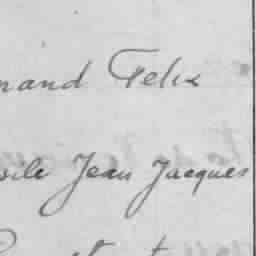 nand Felix
sile Jean Jacques